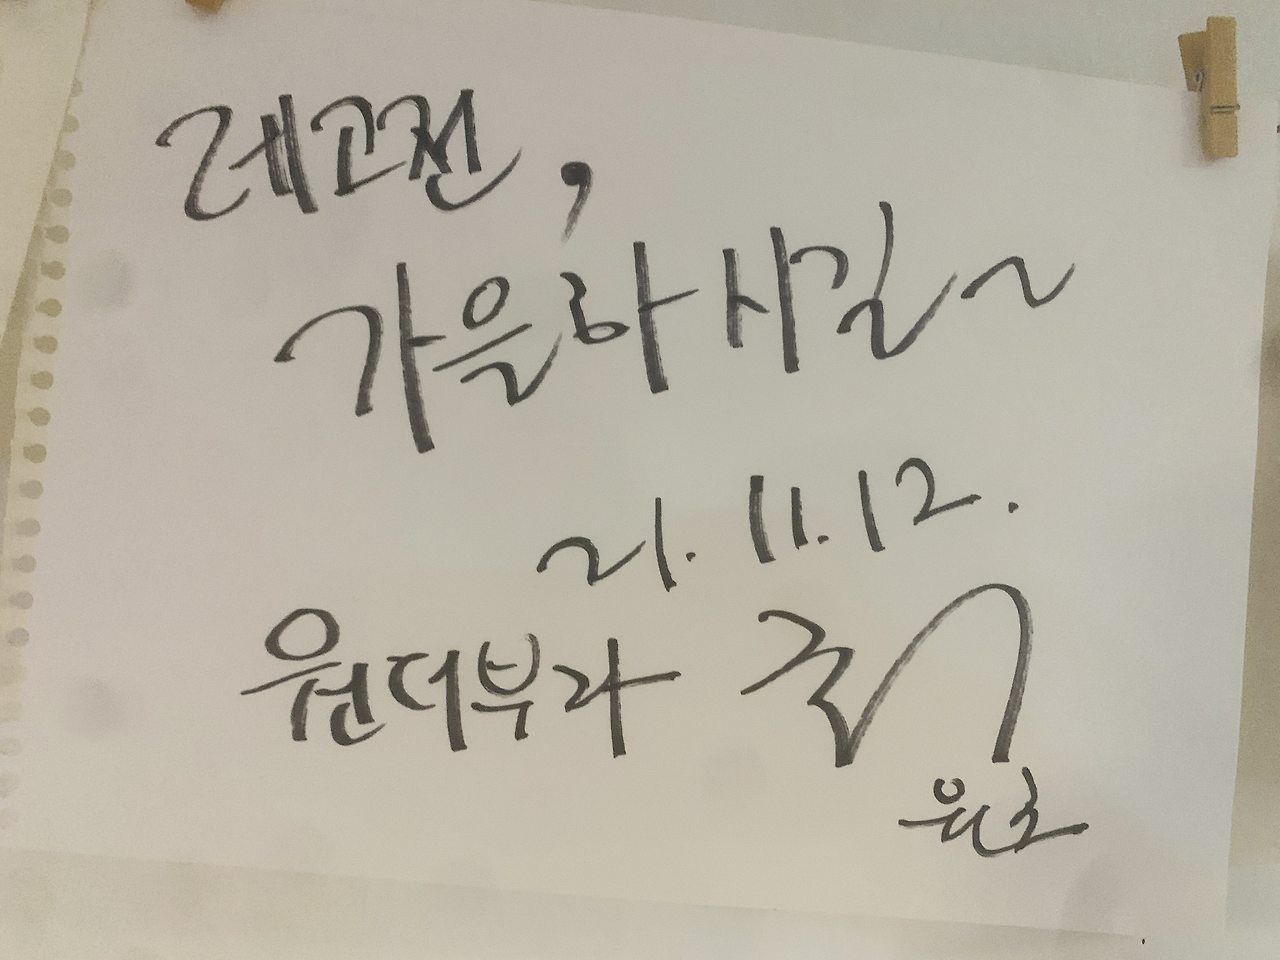 레고전,
가을하시길~
21. 11. 12.
원더부라